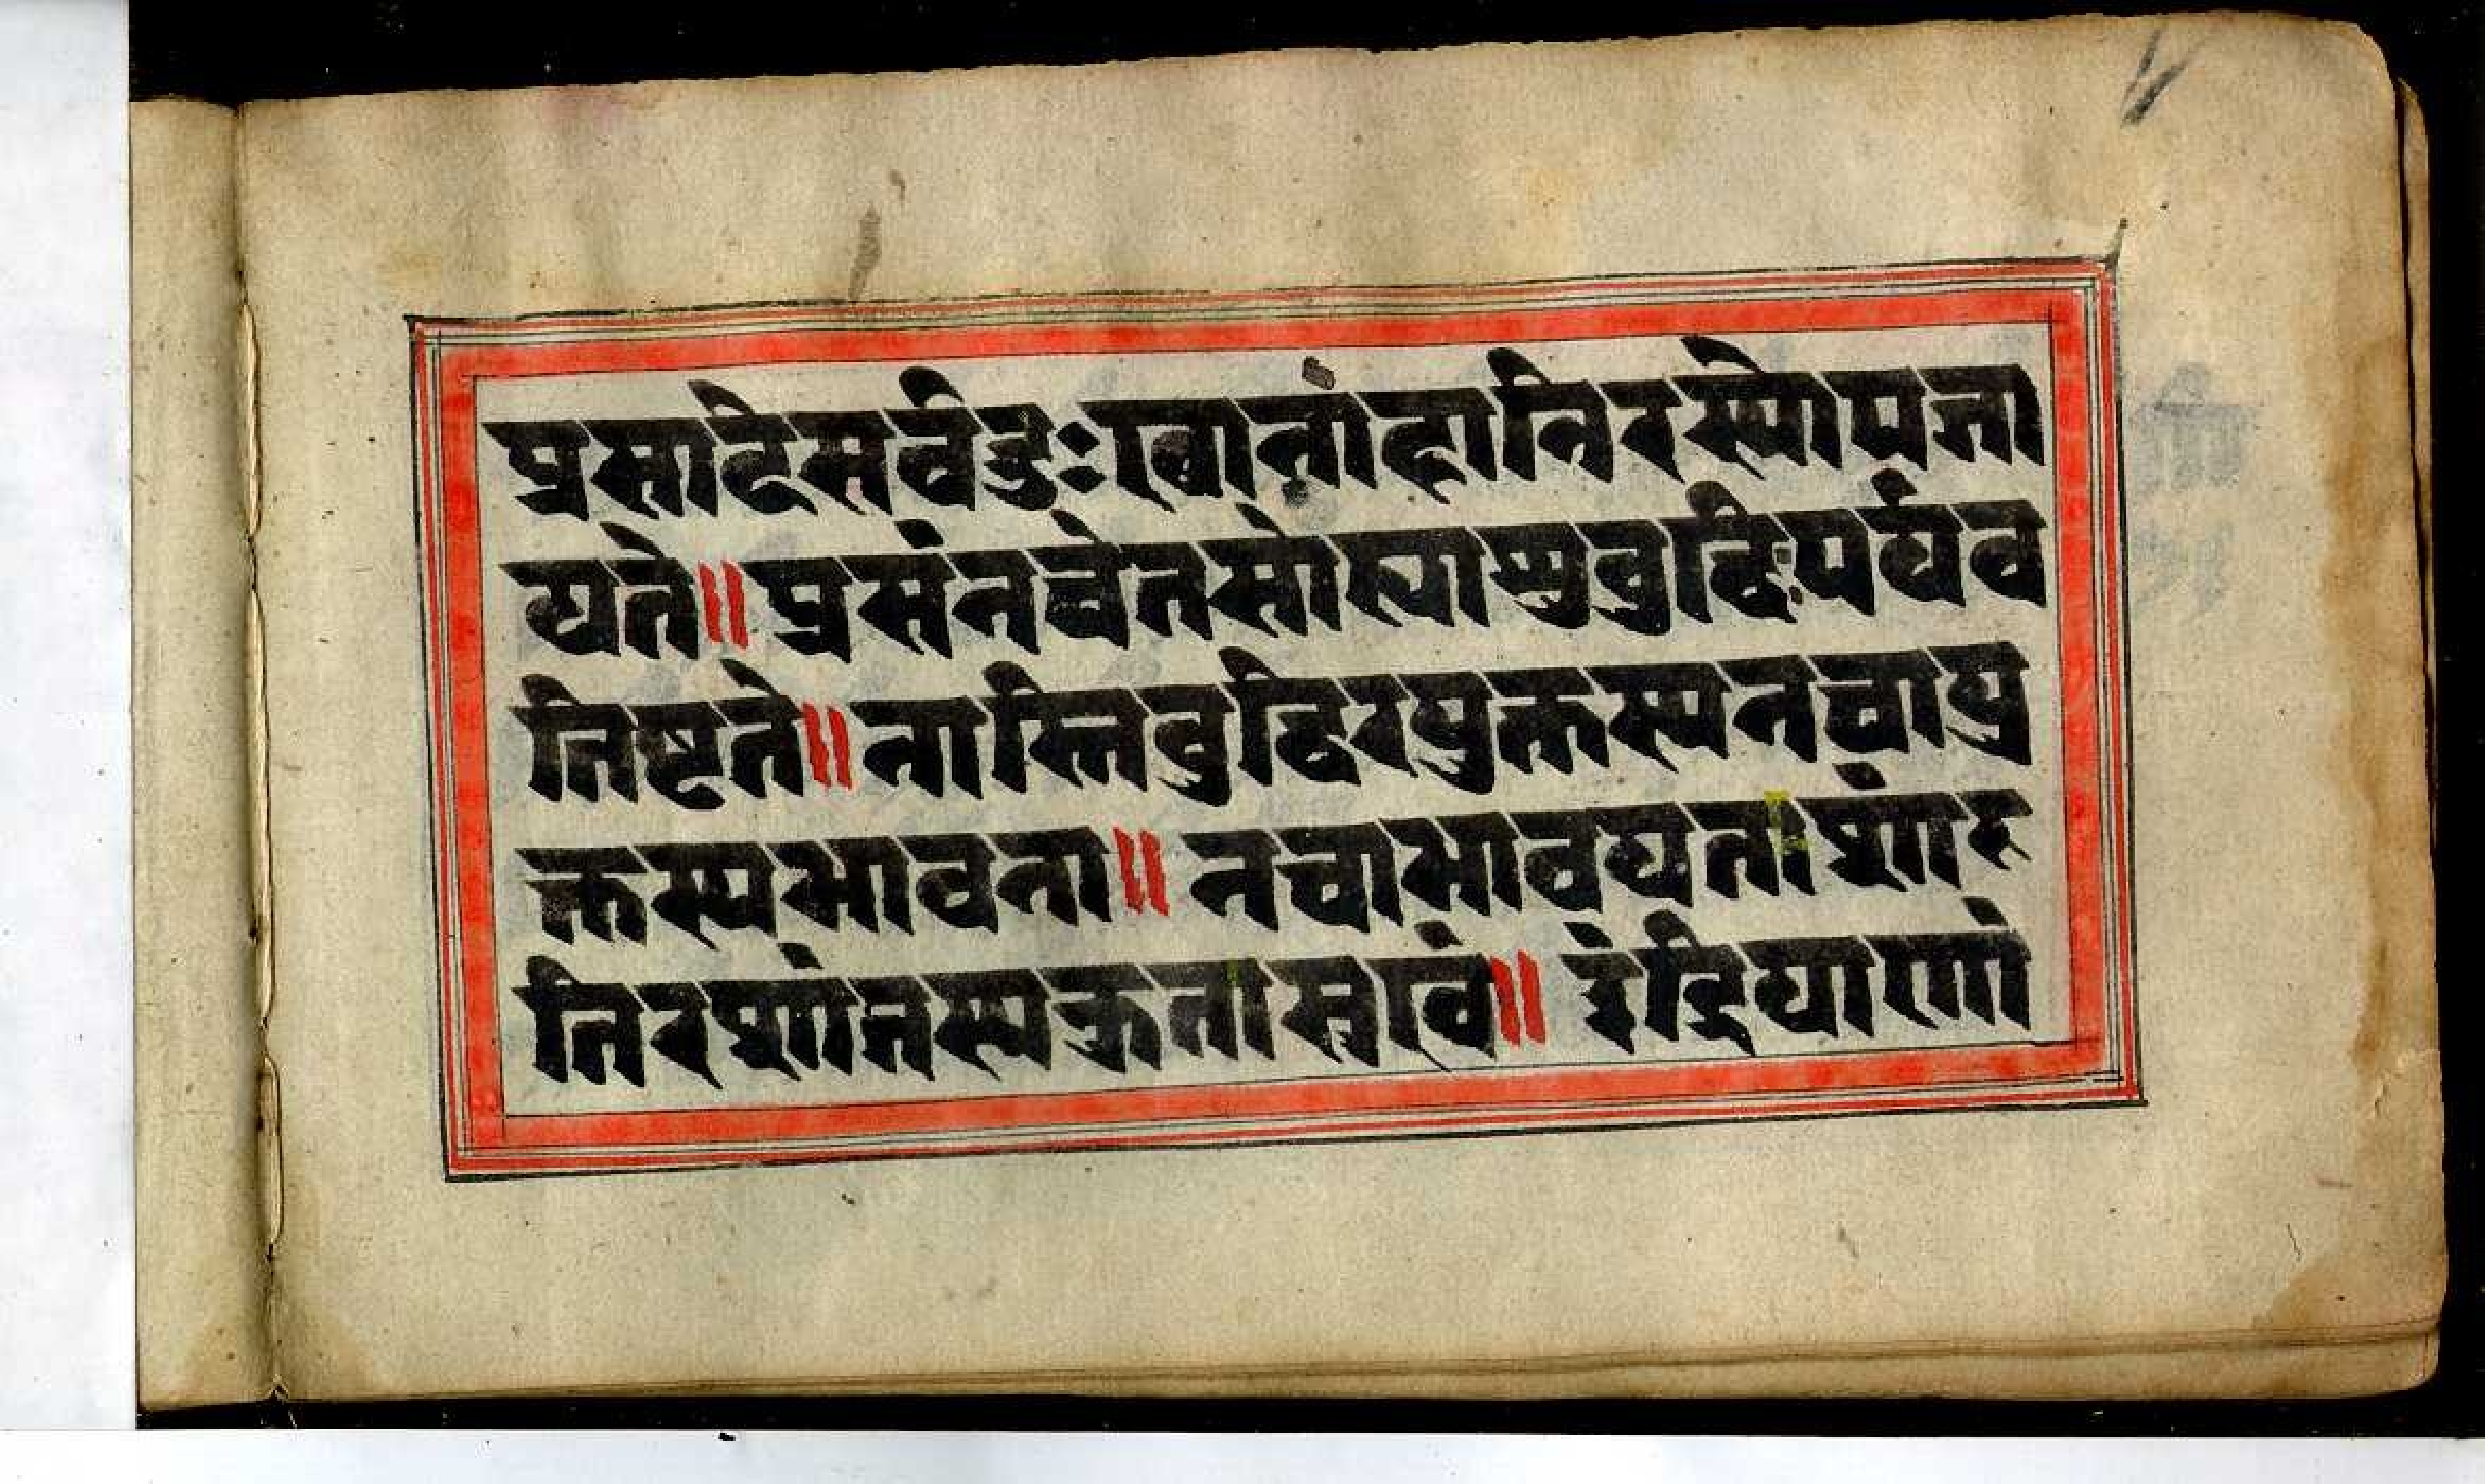 प्रसादेसर्वदुःखानांहानिरस्योपजा
यते॥प्रसंनचेतसोह्याशुबुद्धिःपर्यव
तिष्टते॥नास्तिबुद्धिरयुक्तस्यनचायु
क्तस्यभावना॥नचाभावयतःशांर
तिरशांतस्यकुतःसुखं॥इंद्रियाणां